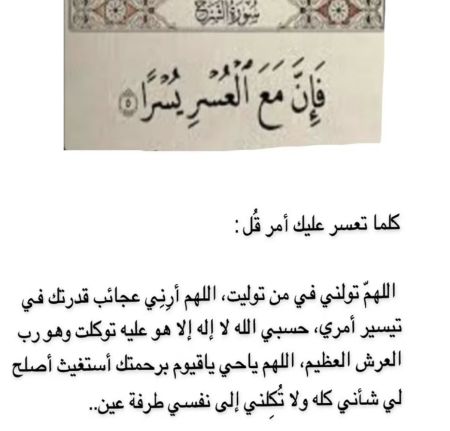 سُورَةُ الشَّرْحِ
فَإِنَّ مَعَ ٱلْعُسْرِ يُسْرًا ٥
كلما تعسر عليك أمر قُل:
اللهمّ تولني في من توليت، اللهم أرِنِي عجائب قدرتك في
تيسير أمري، حسبي الله لا إله إلا هو عليه توكلت وهو رب
العرش العظيم، اللهم ياحي ياقيوم برحمتك أستغيث أصلح
لي شأني كله ولا تُكِلني إلى نفسي طرفة عين..